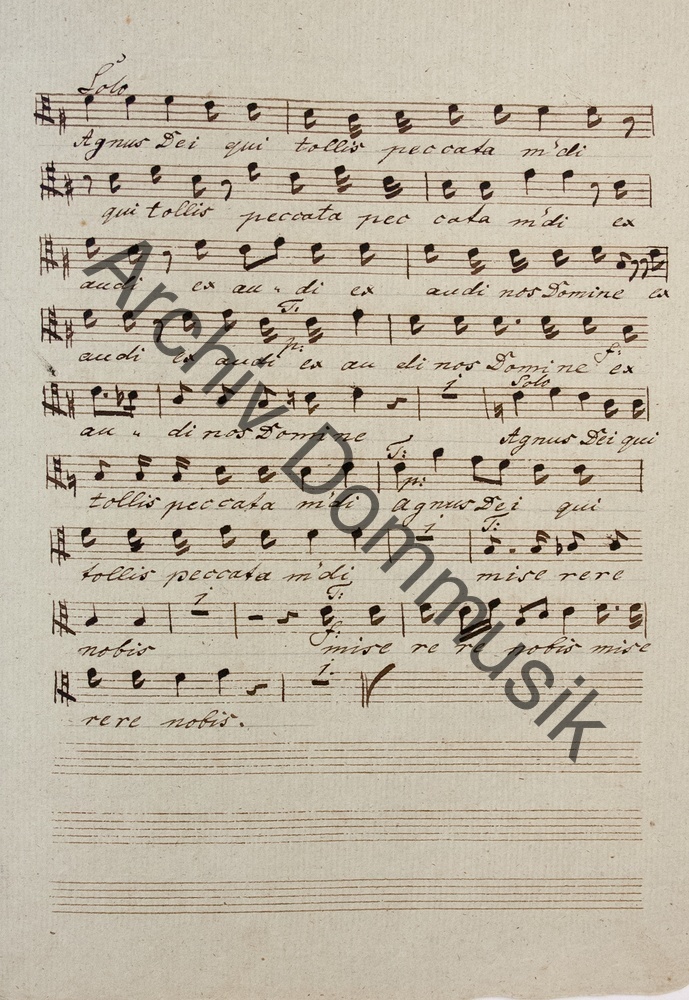 Solo
Agnus Dei qui tollis peccata m̄di
qui tollis peccata pec cata m̄di ex
audi ex au - di ex audi nos Domine ex
T:
p:
audi ex audi ex au di nos Domine ex
f:
Solo
au - di nos Domine Agnus Dei qui
T:
p:
tollis peccata m̄di Agnus Dei qui
T:
tollis peccata m̄di mise rere
T:
f:
nobis mise re re nobis mise
rere nobis.
Archiv Dommusik